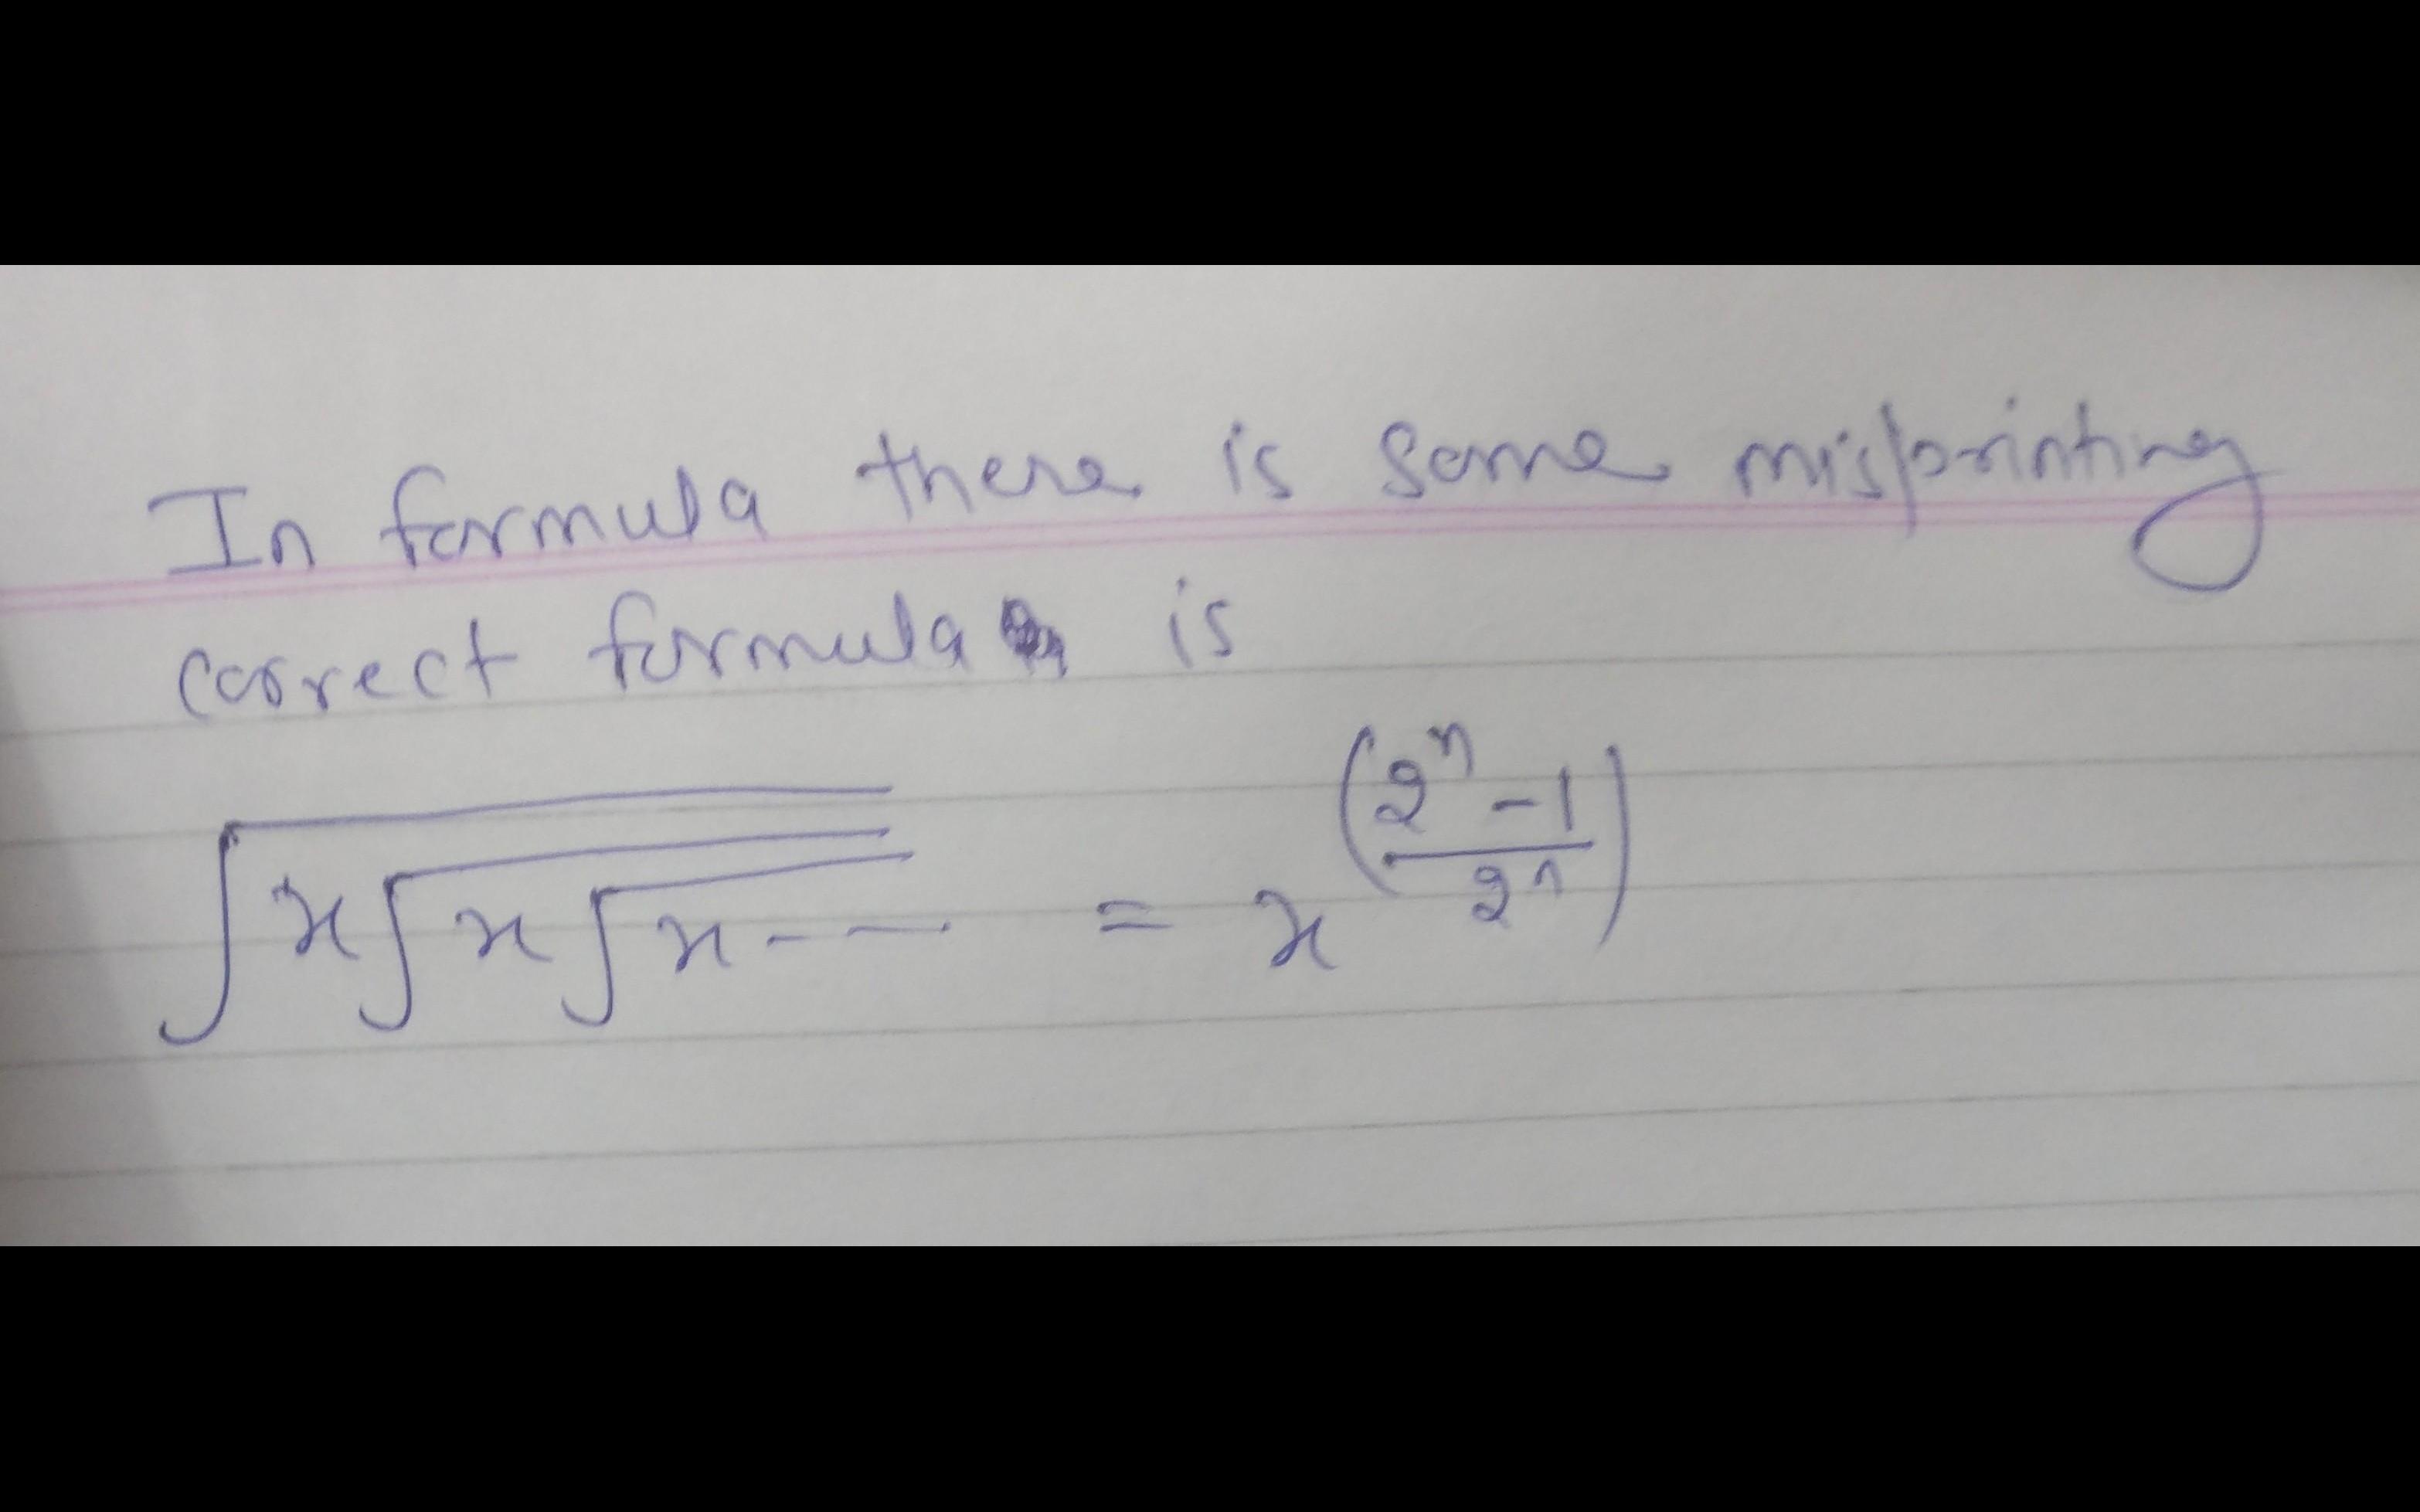 In formula there is some misprinting
correct formula is
√x√x√x--- = x^((2^n - 1)/2^n)